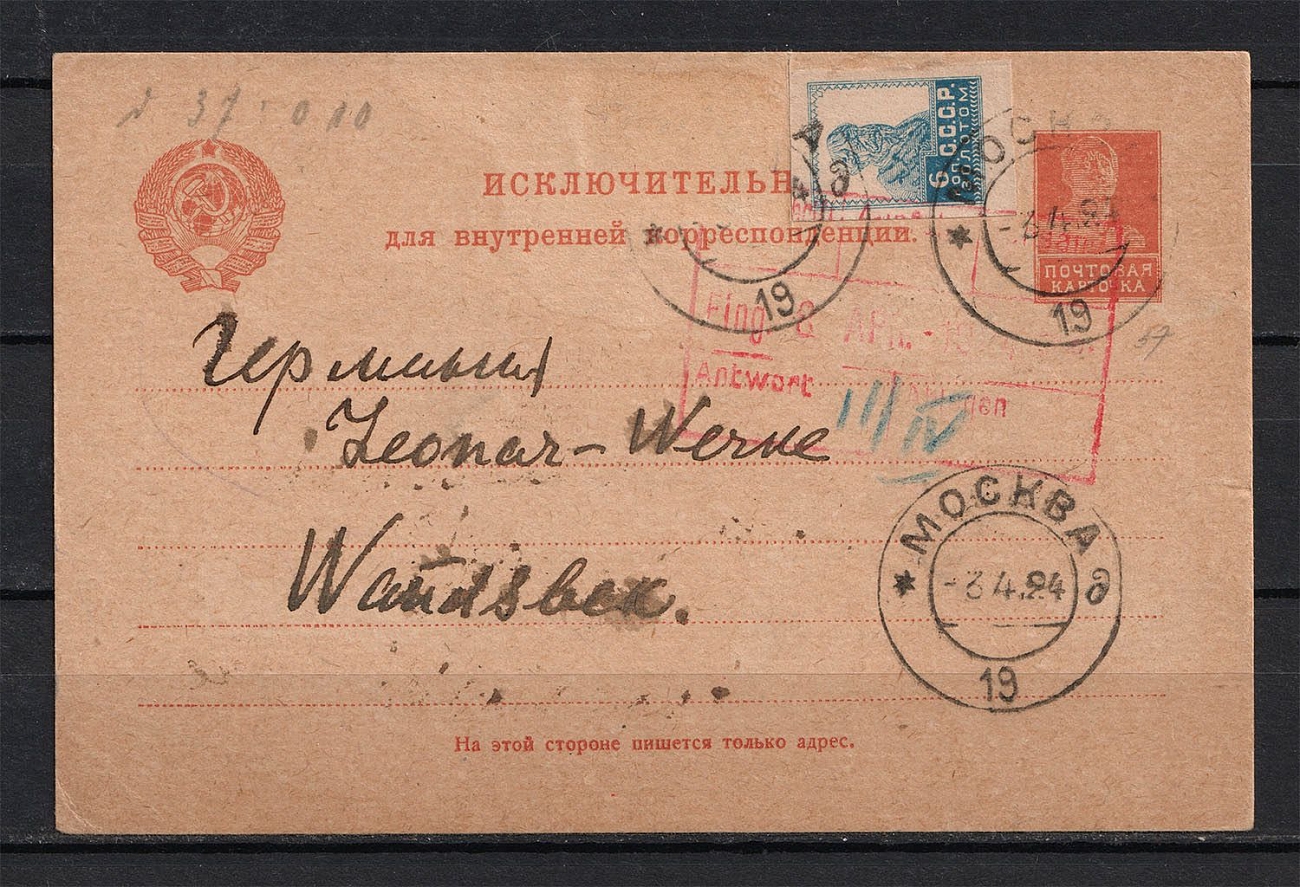 37
ИСКЛЮЧИТЕЛЬН
для внутренней корреспонденции.
6 С.С.С.Р.
КОП. ЗОЛОТОМ
МОСКВА
-3.4.24
19
ПОЧТОВАЯ
КАРТОЧКА
19
Eing 8 APR.
Antwort
III/IV
57
Германия
Leonar-Werke
Wandsbek.
МОСКВА
-3.4.24
19
На этой стороне пишется только адрес.